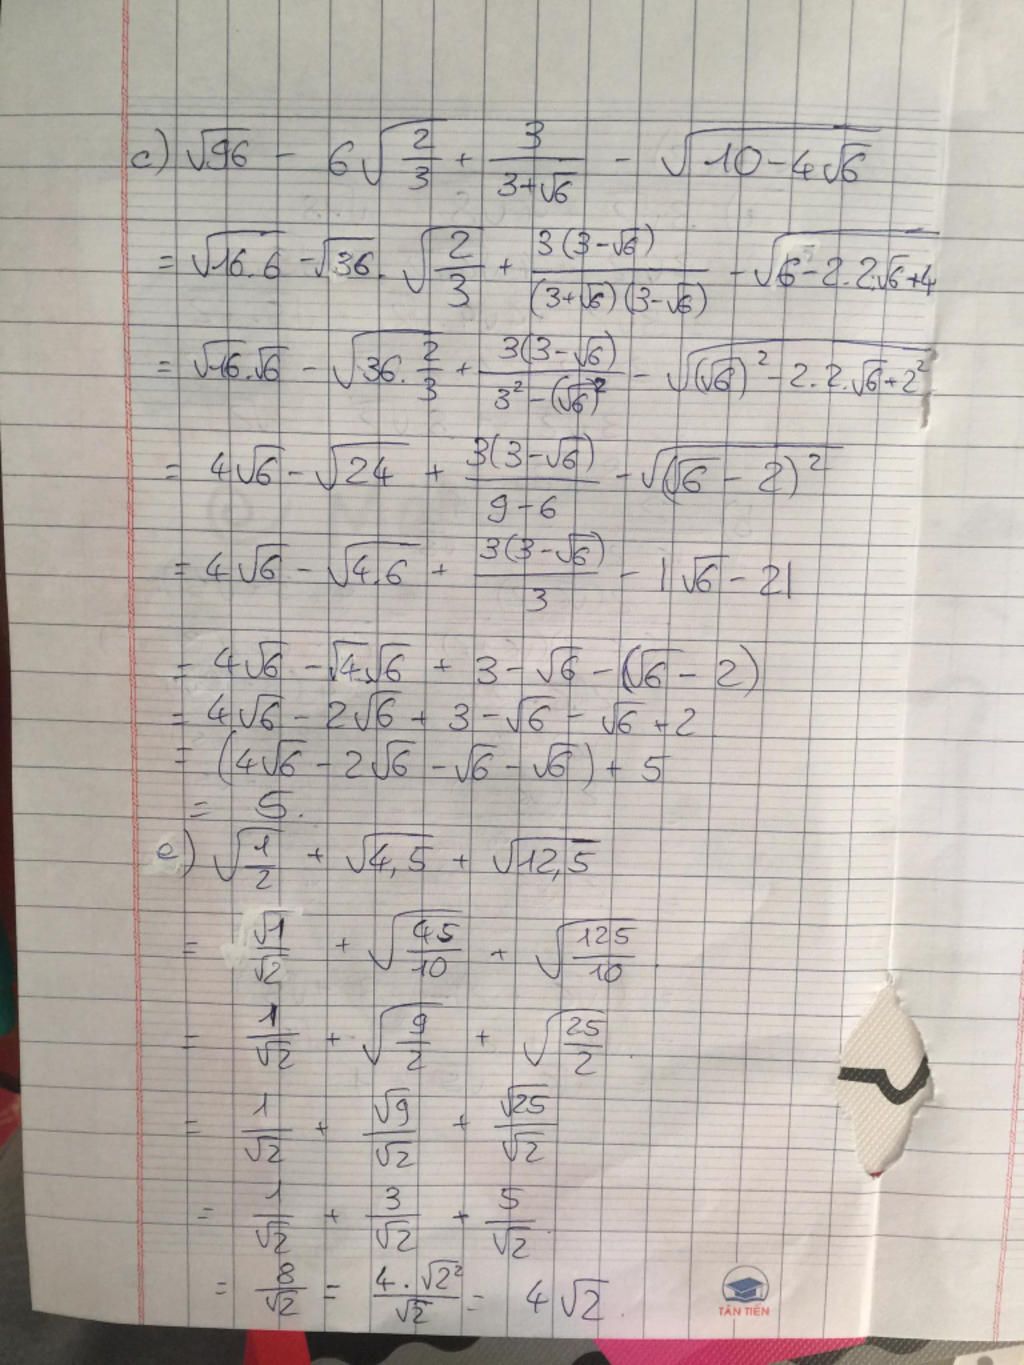 c) √96 - 6√(2/3) + 3/(3+√6) - √(10-4√6)
= √(16.6) - √36 . √(2/3) + 3(3-√6)/((3+√6)(3-√6)) - √(6-2.2.√6+4)
= √16.√6 - √(36.2/3) + 3(3-√6)/(3²-(√6)²) - √((√6)²-2.2.√6+2²)
= 4√6 - √24 + 3(3-√6)/(9-6) - √((√6-2)²)
= 4√6 - √(4.6) + 3(3-√6)/3 - |√6-2|
= 4√6 - √4.√6 + 3 - √6 - (√6-2)
= 4√6 - 2√6 + 3 - √6 - √6 + 2
= (4√6 - 2√6 - √6 - √6) + 5
= 5.
e) √(1/2) + √4,5 + √12,5
= √1/√2 + √(45/10) + √(125/10)
= 1/√2 + √(9/2) + √(25/2)
= 1/√2 + √9/√2 + √25/√2
= 1/√2 + 3/√2 + 5/√2
= 8/√2 = 4.√2²/√2 = 4√2.
TÂN TIẾN